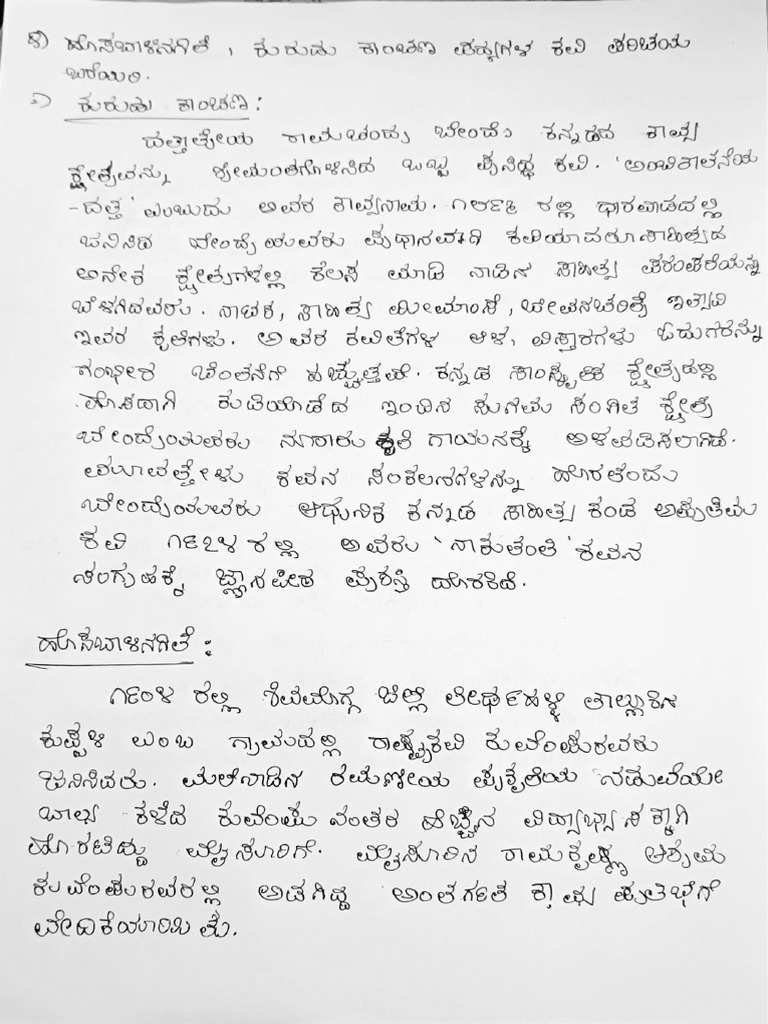 ೪) ಹೊಸಬಾಳಿನಗೀತೆ, ಕುರುಡು ಕಾಂಚಣ ಪದ್ಯಗಳ ಕವಿ ಪರಿಚಯ
ಬರೆಯಿರಿ.
೧) ಕುರುಡು ಕಾಂಚಣ :
ದತ್ತಾತ್ರೇಯ ರಾಮಚಂದ್ರ ಬೇಂದ್ರೆ ಕನ್ನಡದ ಕಾವ್ಯ
ಕ್ಷೇತ್ರವನ್ನು ಶ್ರೀಮಂತಗೊಳಿಸಿದ ಒಬ್ಬ ಪ್ರಸಿದ್ಧ ಕವಿ. 'ಅಂಬಿಕಾತನೆಯ
-ದತ್ತ' ಎಂಬುದು ಅವರ ಕಾವ್ಯನಾಮ. ೧೮೯೬ ರಲ್ಲಿ ಧಾರವಾಡದಲ್ಲಿ
ಜನಿಸಿದ ಬೇಂದ್ರೆಯವರು ಪ್ರಧಾನವಾಗಿ ಕವಿಯಾದರೂ ಸಾಹಿತ್ಯದ
ಅನೇಕ ಕ್ಷೇತ್ರಗಳಲ್ಲಿ ಕೆಲಸ ಮಾಡಿ ನಾಡಿನ ಸಾಹಿತ್ಯ ಪರಂಪರೆಯನ್ನು
ಬೆಳಗಿದವರು. ನಾಟಕ, ಸಾಹಿತ್ಯ ಮೀಮಾಂಸೆ, ಜೀವನಚರಿತ್ರೆ ಇತ್ಯಾದಿ
ಇವರ ಕೃತಿಗಳು. ಅವರ ಕವಿತೆಗಳ ಆಳ, ವಿಸ್ತಾರಗಳು ಓದುಗರನ್ನು
ಗಂಭೀರ ಚಿಂತನೆಗೆ ಹಚ್ಚುತ್ತವೆ. ಕನ್ನಡ ಸಾಂಸ್ಕೃತಿಕ ಕ್ಷೇತ್ರದಲ್ಲಿ
ಹೊಸದಾಗಿ ಕುಡಿಯೊಡೆದ ಇಂದಿನ ಸುಗಮ ಸಂಗೀತ ಕ್ಷೇತ್ರ
ಬೇಂದ್ರೆಯವರು ನೂರಾರು ಕೃತಿ ಗಾಯನಕ್ಕೆ ಅಳವಡಿಸಲಾಗಿದೆ.
ಮೂವತ್ತೇಳು ಕವನ ಸಂಕಲನಗಳನ್ನು ಹೊರತಂದು
ಬೇಂದ್ರೆಯವರು ಆಧುನಿಕ ಕನ್ನಡ ಸಾಹಿತ್ಯ ಕಂಡ ಅಪ್ರತಿಮ
ಕವಿ ೧೯೭೪ ರಲ್ಲಿ ಅವರು 'ನಾಕುತಂತಿ' ಕವನ
ಸಂಗ್ರಹಕ್ಕೆ ಜ್ಞಾನಪೀಠ ಪ್ರಶಸ್ತಿ ದೊರಕಿದೆ.
ಹೊಸಬಾಳಿನಗೀತೆ :
೧೯೦೪ ರಲ್ಲಿ ಶಿವಮೊಗ್ಗ ಜಿಲ್ಲೆ ತೀರ್ಥಹಳ್ಳಿ ತಾಲ್ಲೂಕಿನ
ಕುಪ್ಪಳಿ ಎಂಬ ಗ್ರಾಮದಲ್ಲಿ ರಾಷ್ಟ್ರಕವಿ ಕುವೆಂಪುರವರು
ಜನಿಸಿದರು. ಮಲೆನಾಡಿನ ರಮಣೀಯ ಪ್ರಕೃತಿಯ ನಡುವೆಯೇ
ಬಾಲ್ಯ ಕಳೆದ ಕುವೆಂಪು ನಂತರ ಹೆಚ್ಚಿನ ವಿದ್ಯಾಭ್ಯಾಸಕ್ಕಾಗಿ
ಹೊರಟಿದ್ದು ಮೈಸೂರಿಗೆ. ಮೈಸೂರಿನ ರಾಮಕೃಷ್ಣ ಆಶ್ರಮ
ಕುವೆಂಪುರವರಲ್ಲಿ ಅಡಗಿದ್ದ ಅಂತರ್ಗತ ಕಾವ್ಯ ಪ್ರತಿಭೆಗೆ
ವೇದಿಕೆಯಾಯಿತು.